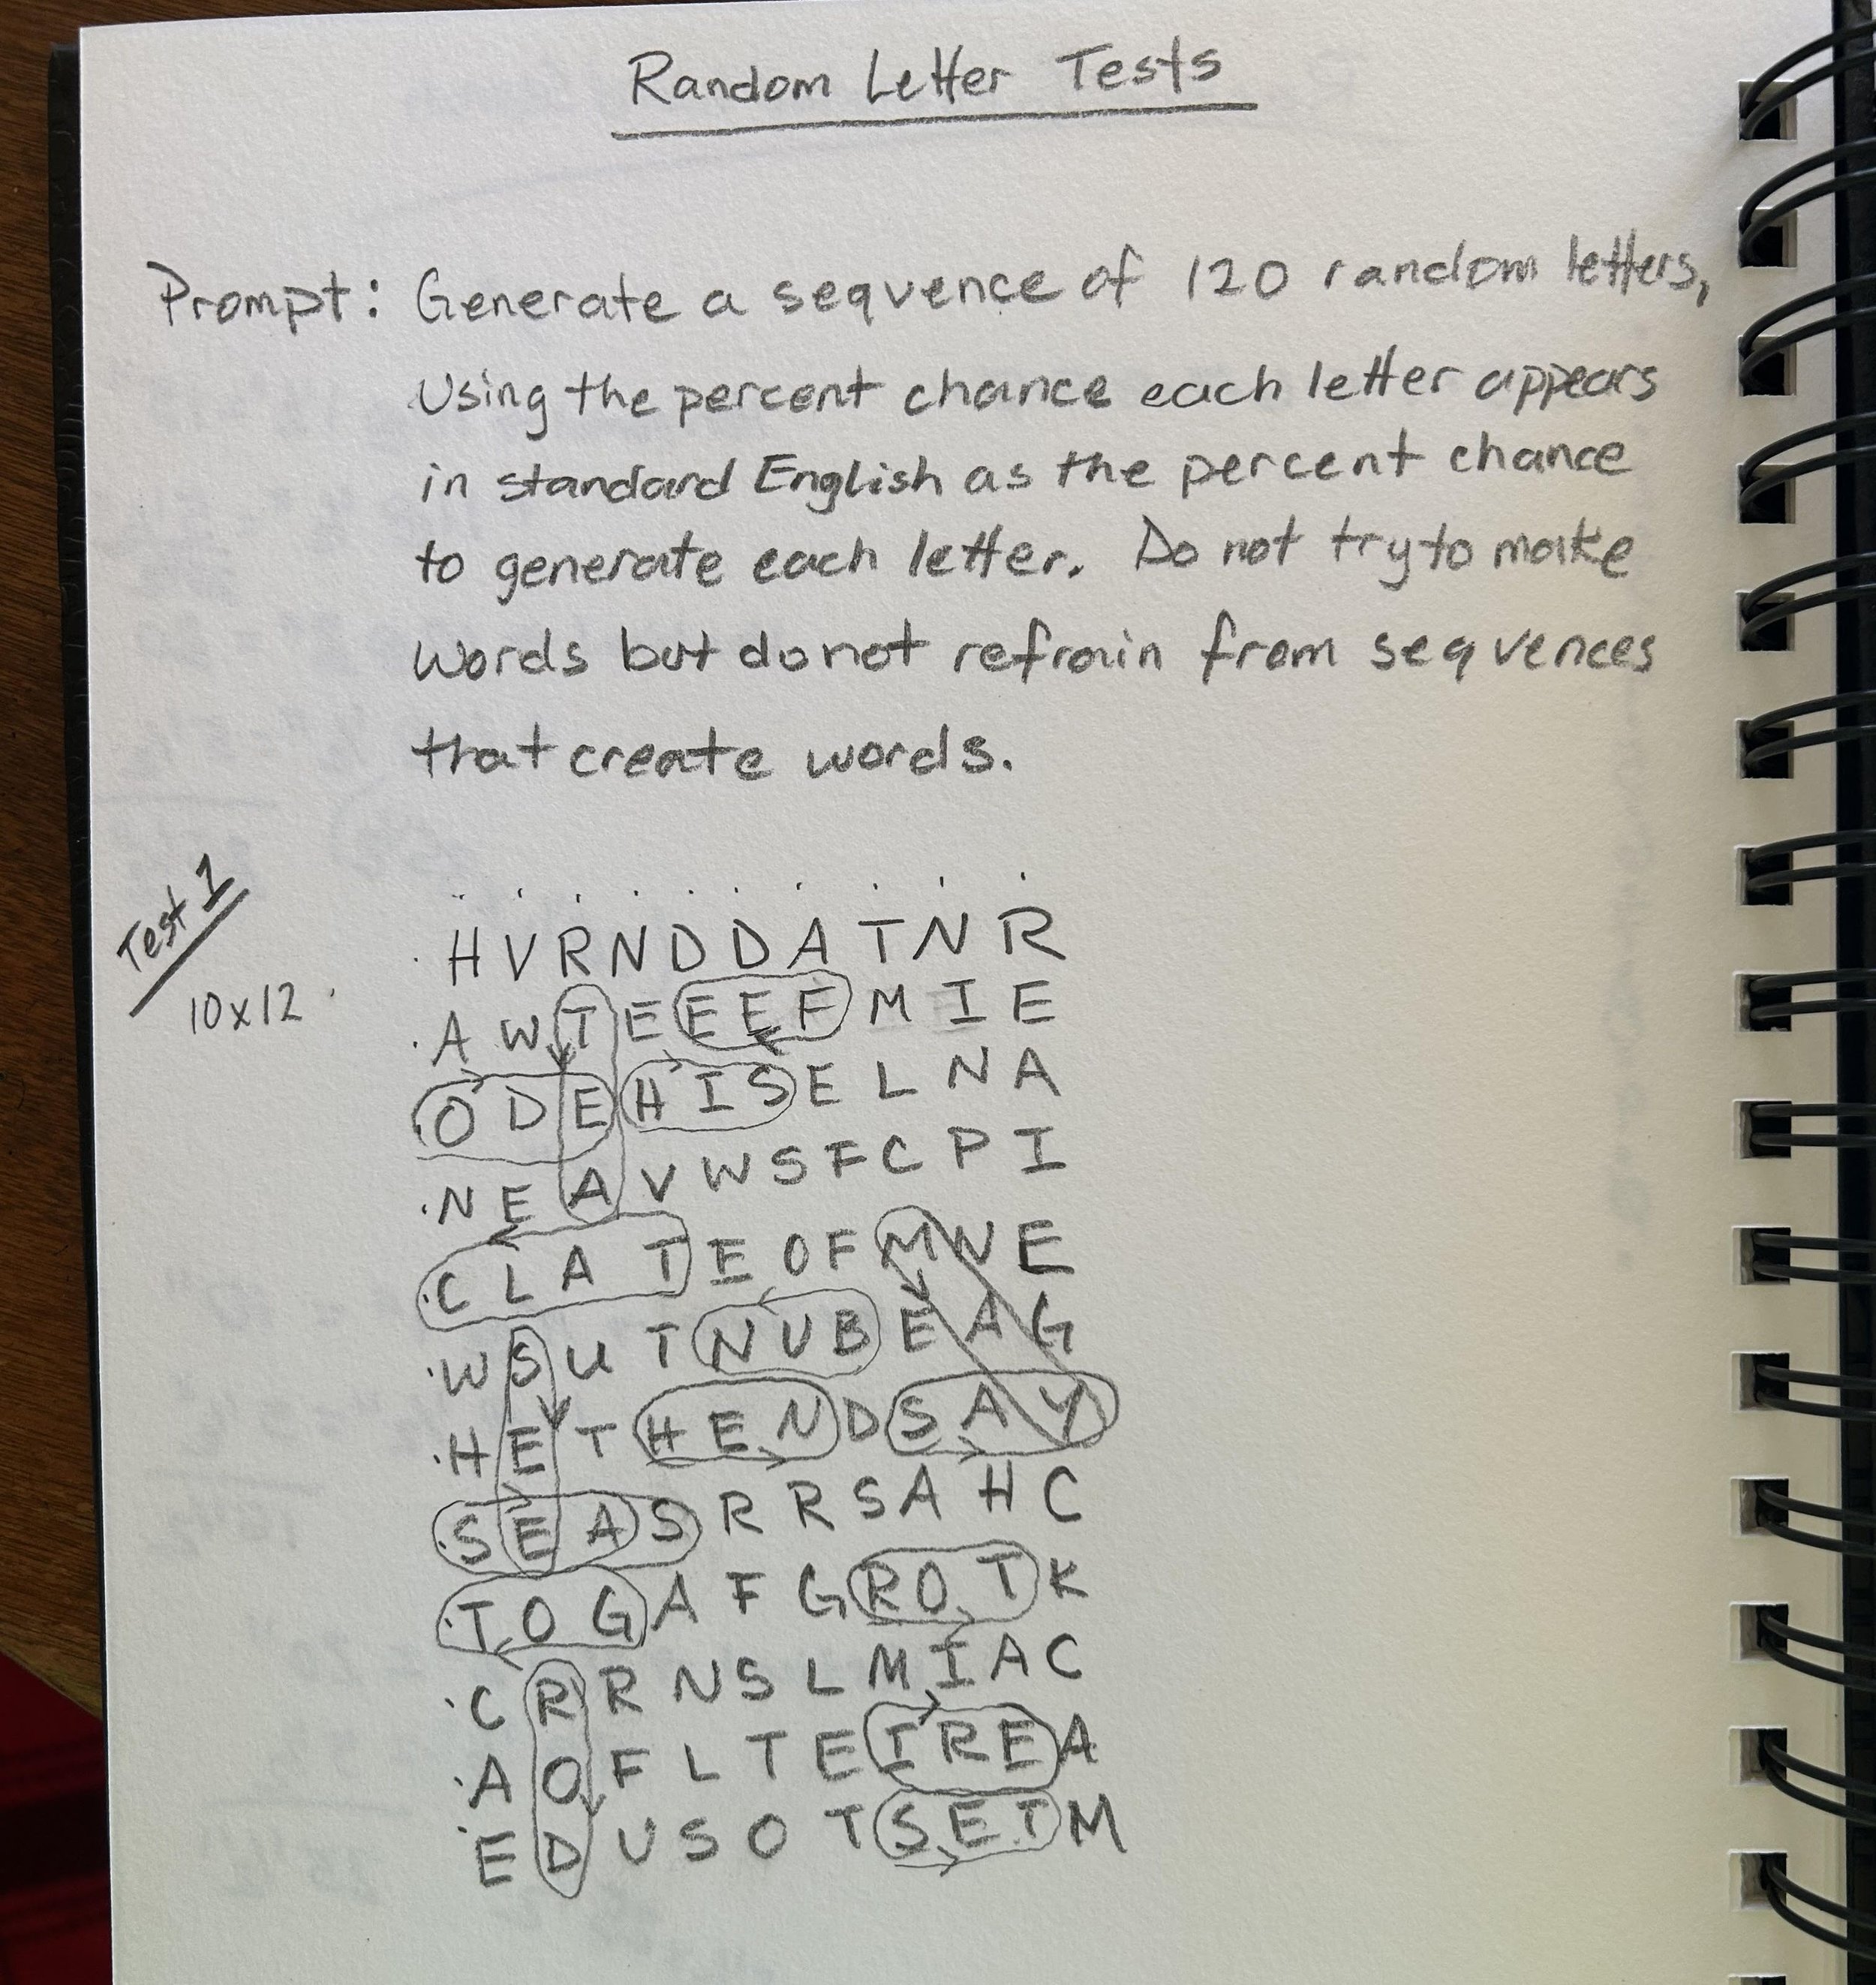 Random Letter Tests
Prompt: Generate a sequence of 120 random letters,
Using the percent chance each letter appears
in standard English as the percent chance
to generate each letter. Do not try to make
words but do not refrain from sequences
that create words.
Test 1
10x12
H V R N D D A T N R
A W T E E E F M I E
O D E H I S E L N A
N E A V W S F C P I
C L A T E O F M N E
W S U T N U B E A G
H E T H E N D S A Y
S E A S R R S A H C
T O G A F G R O T K
C R R N S L M I A C
A O F L T E I R E A
E D U S O T S E T M